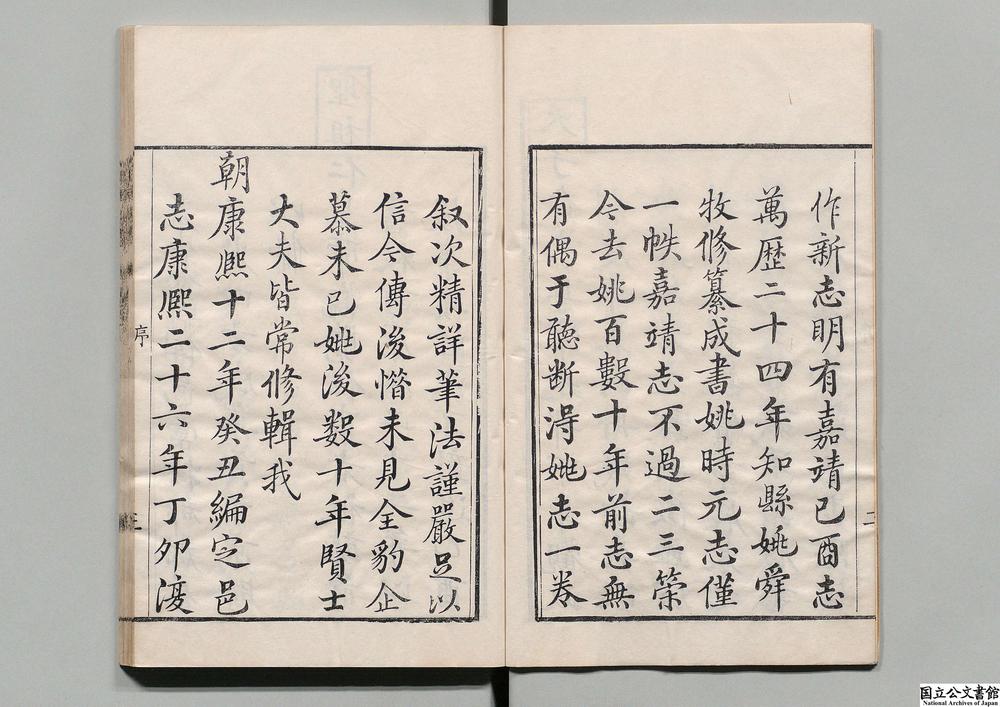 作新志明有嘉靖已酉志
萬歴二十四年知縣姚舜
牧修纂成書姚時元志僅
一帙嘉靖志不過二三策
今去姚百數十年前志無
有偶于聽断淂姚志一卷
二
叙次精詳筆法謹嚴足以
信今傳後惜未見全豹企
慕未已姚後数十年賢士
大夫皆常修輯我
朝康熙十二年癸丑編定邑
志康熙二十六年丁卯復
序
三
国立公文書館
National Archives of Japan